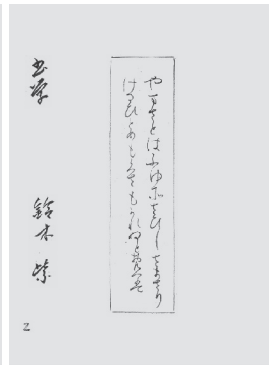 やまさとはふゆそさひしさまさり
けるひとめもくさもかれぬと
鈴木 紫
2